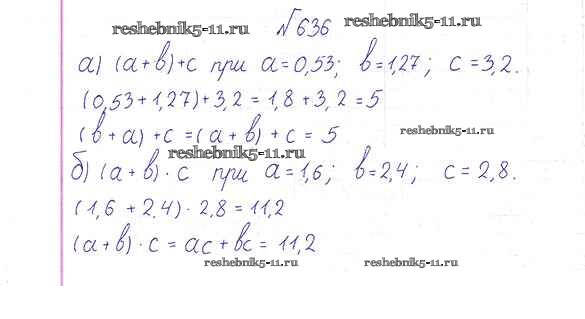 reshebnik5-11.ru №636 reshebnik5-11.ru
а) (a+b)+c при a=0,53; b=1,27; c=3,2.
(0,53+1,27)+3,2=1,8+3,2=5
(b+a)+c=(a+b)+c=5 reshebnik5-11.ru
reshebnik5-11.ru
б) (a+b)·c при a=1,6; b=2,4; c=2,8.
(1,6+2,4)·2,8=11,2
(a+b)·c=ac+bc=11,2
reshebnik5-11.ru reshebnik5-11.ru